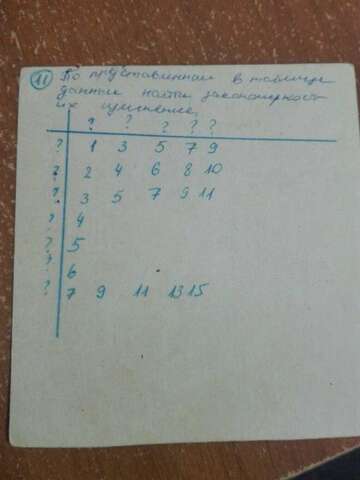 11 По представленной в таблице
данным найти закономерность
их изменение.
? ? ? ? ?
? 1 3 5 7 9
? 2 4 6 8 10
? 3 5 7 9 11
? 4
? 5
? 6
? 7 9 11 13 15